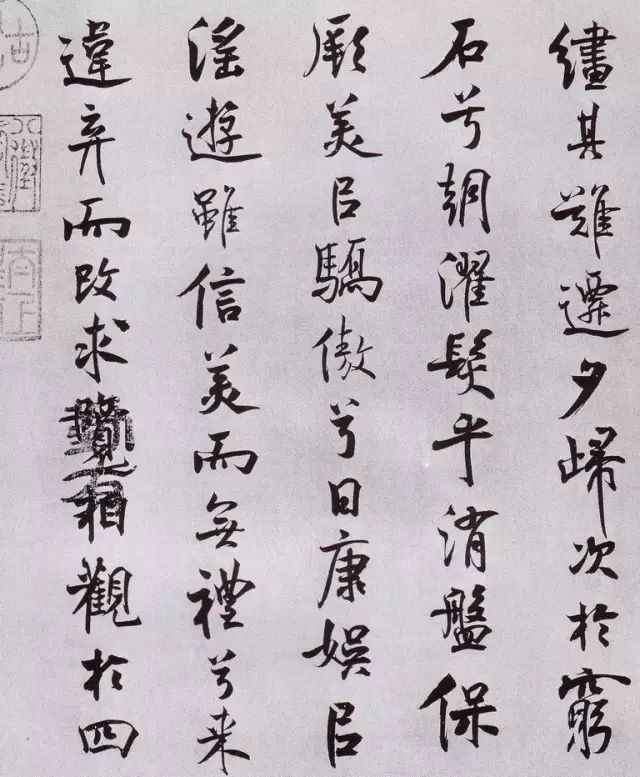 繣其難遷夕歸次於窮
石兮朝濯髮乎洧盤保
厥美㠯驕傲兮日康娛㠯
淫遊雖信美而無禮兮来
違弃而改求覽相觀於四